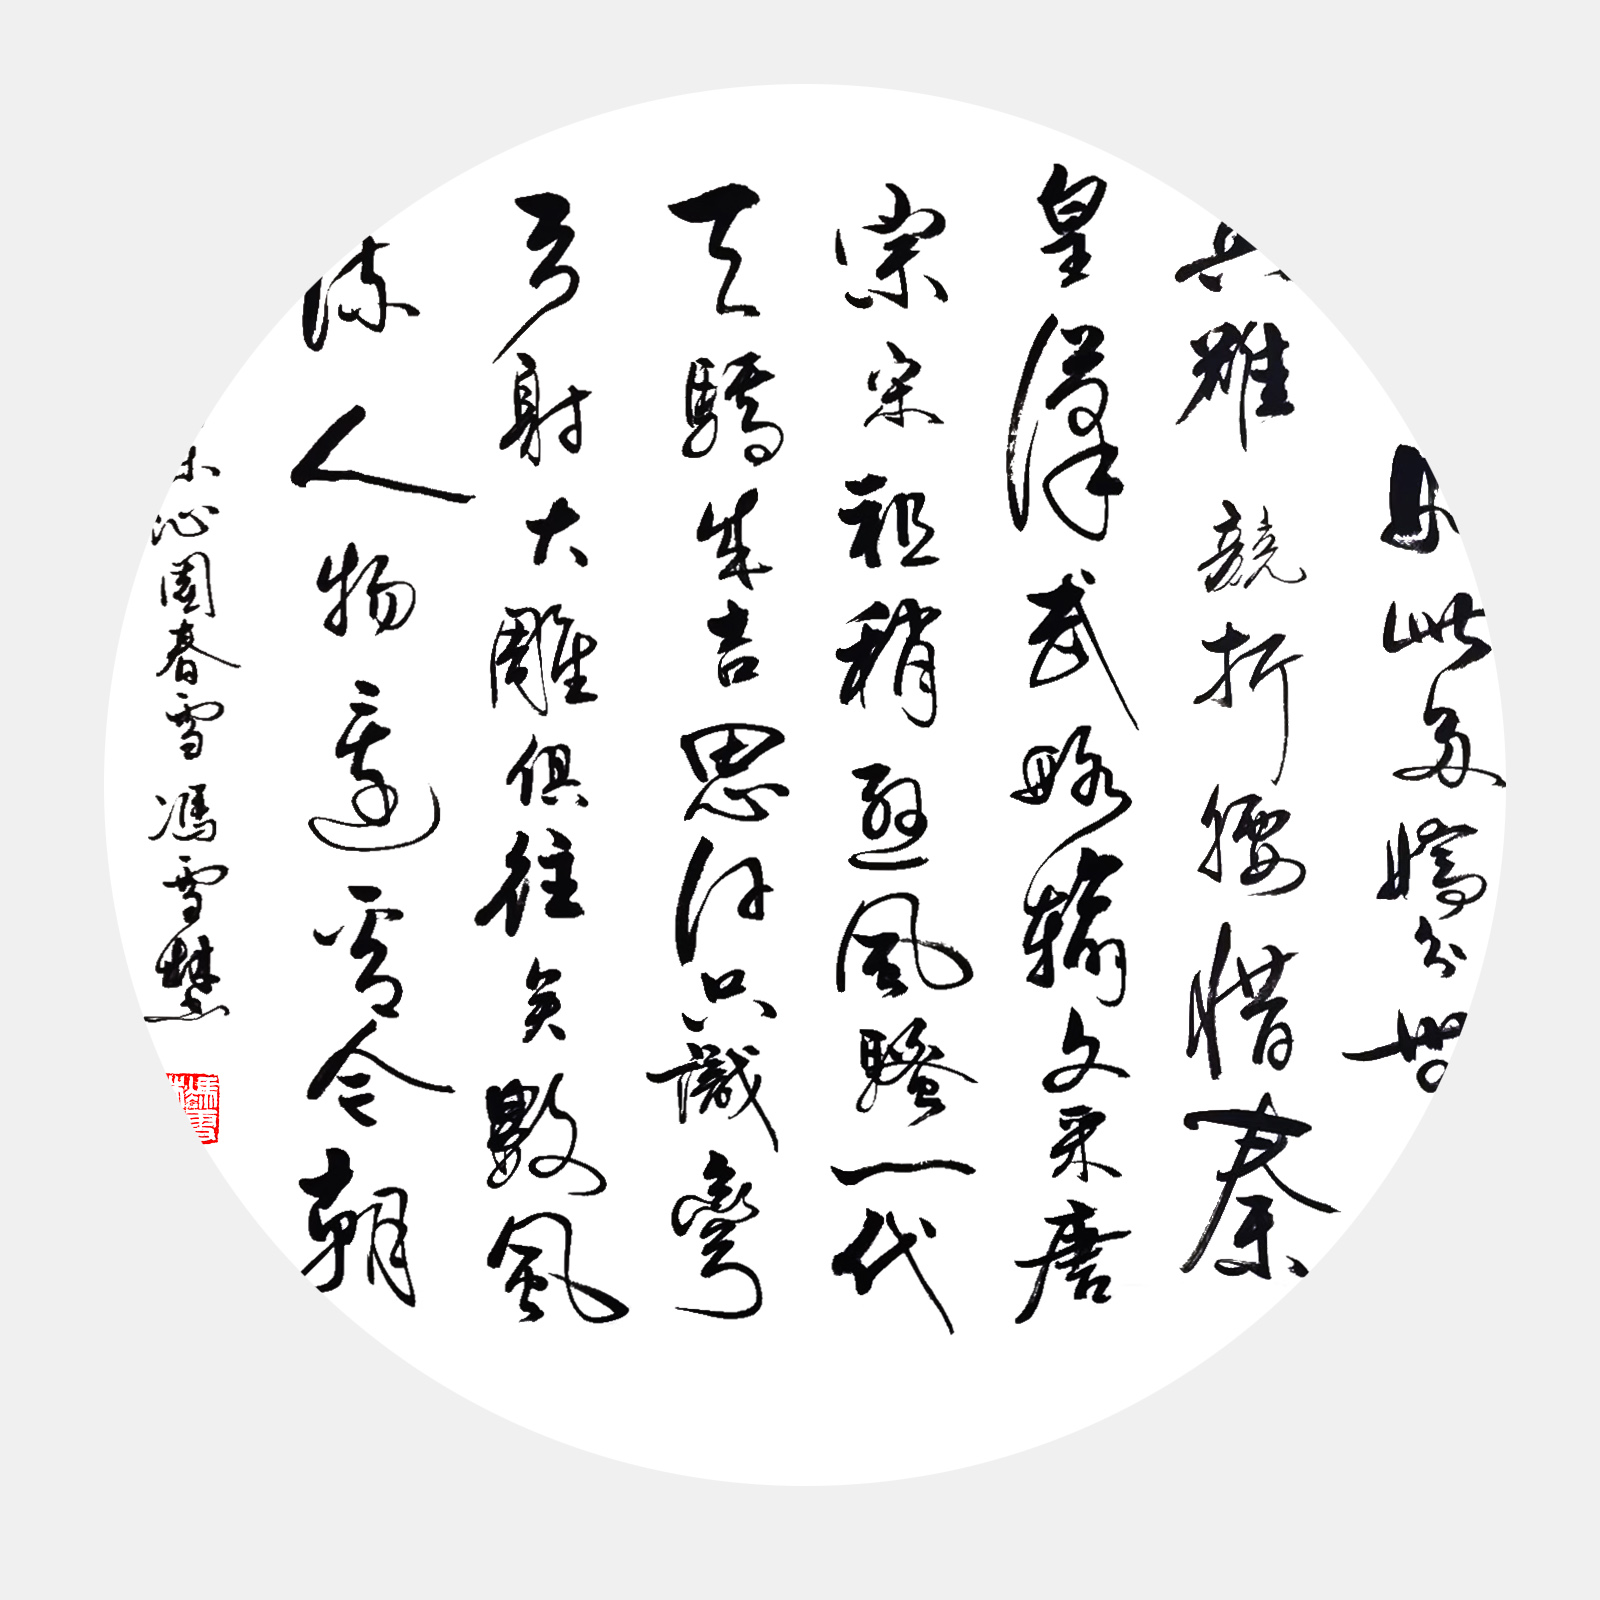 如此多嬌引無
英雄競折腰惜秦
皇漢武略輸文采唐
宗宋祖稍遜風騷一代
天驕成吉思汗只識彎
弓射大雕俱往矣數風
流人物還看今朝
沁園春雪馮雪